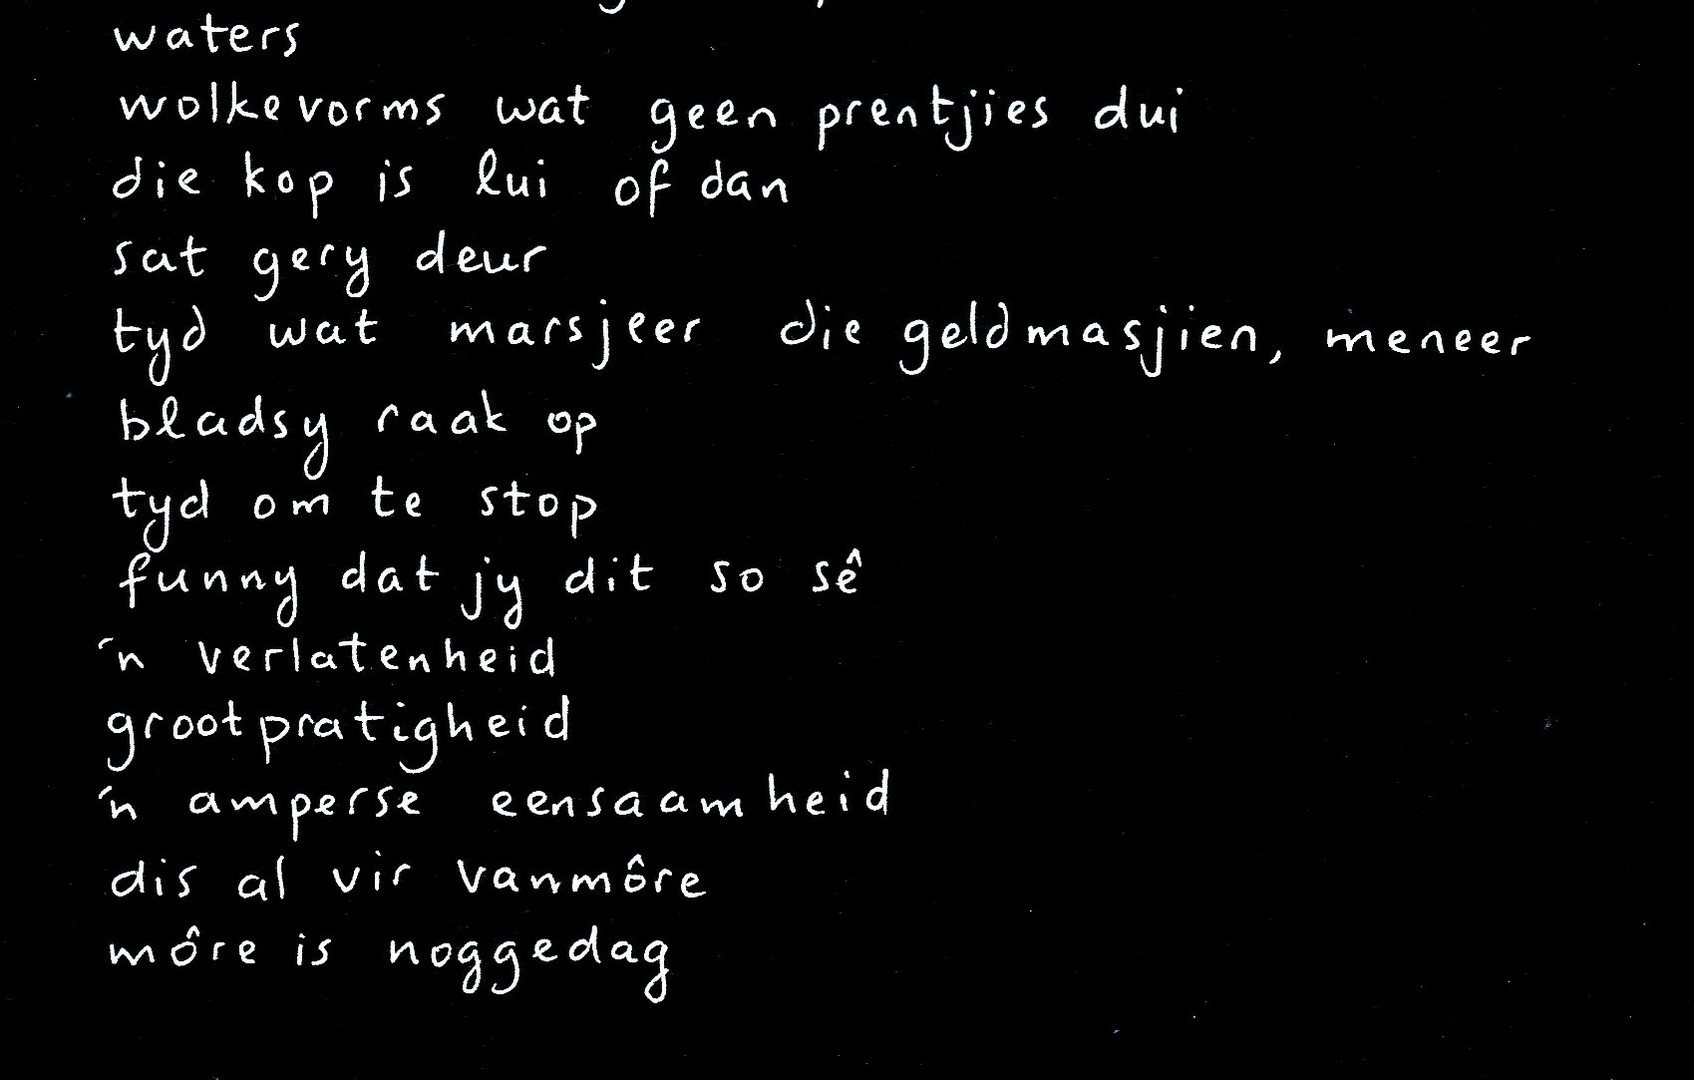 waters
wolkevorms wat geen prentjies dui
die kop is lui of dan
sat gery deur
tyd wat marsjeer die geldmasjien, meneer
bladsy raak op
tyd om te stop
funny dat jy dit so sê
'n verlatenheid
grootpratigheid
'n amperse eensaamheid
dis al vir vanmôre
môre is noggedag